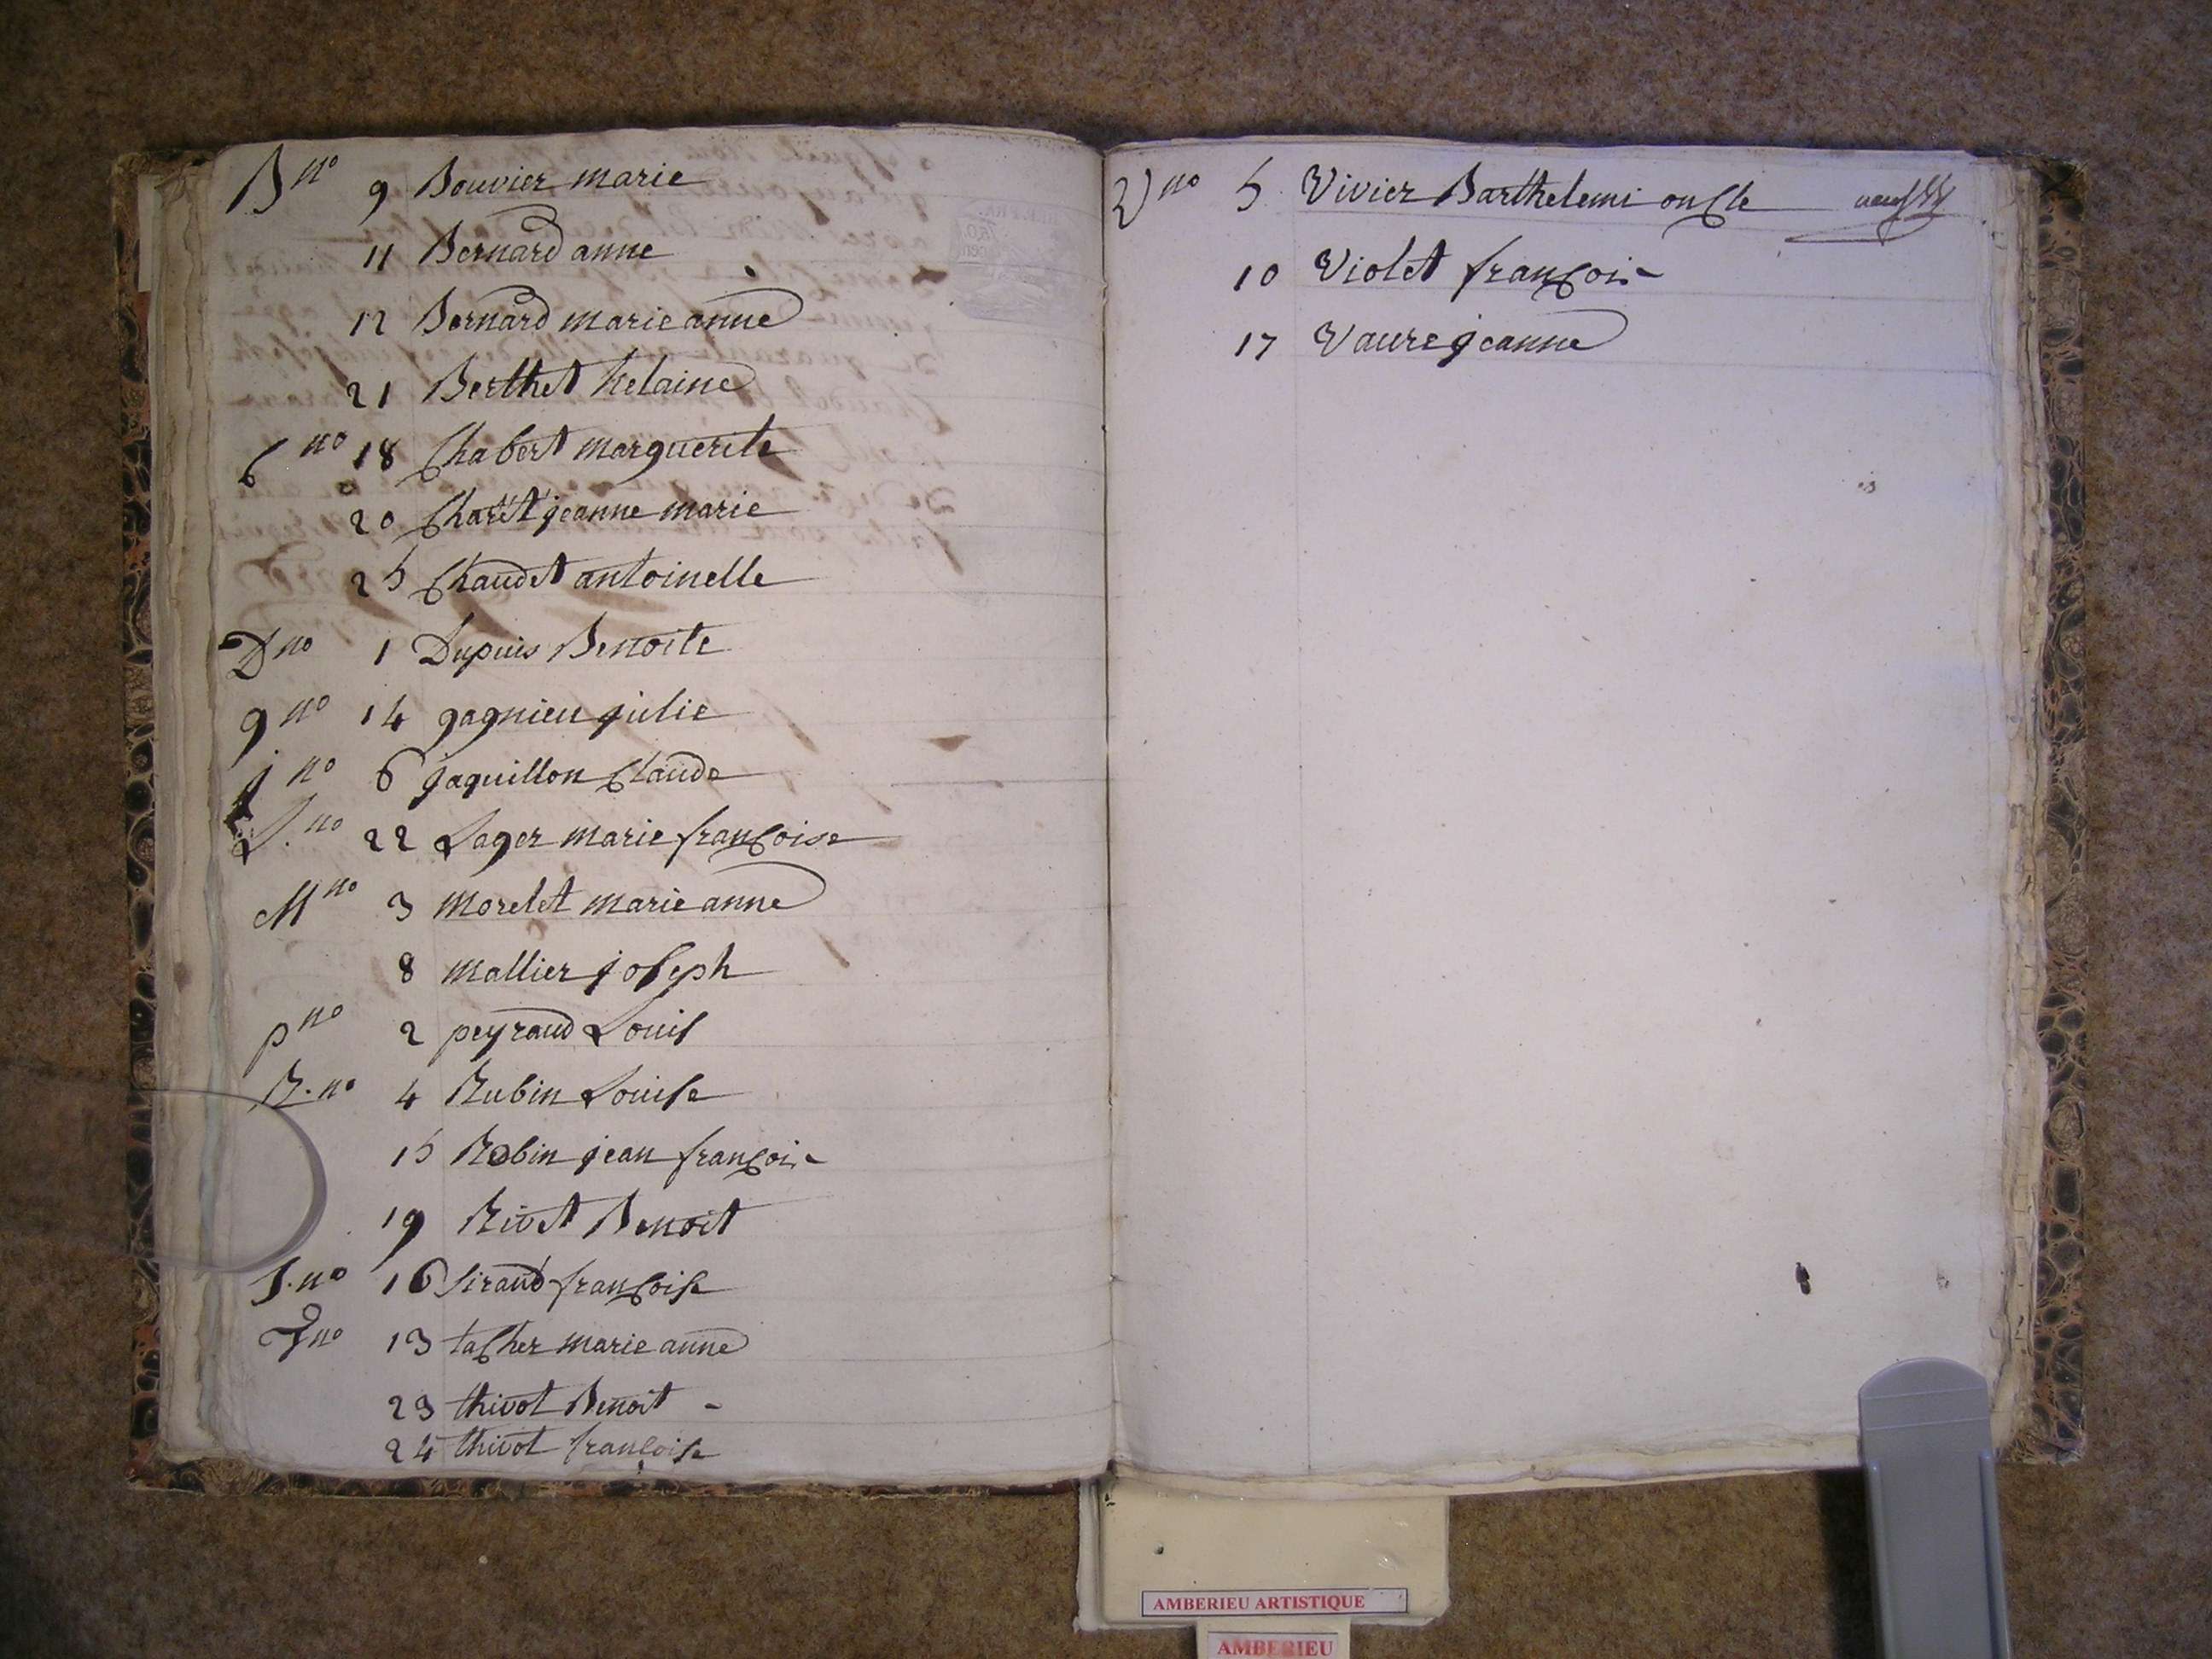 B no 9 Bouvier marie
11 Bernard anne
12 Bernard marie anne
21 Berthet helaine
C no 18 Chabert marguerite
20 Charët jeanne marie
25 Chaudet antoinette
D no 1 Dupuis Benoite
g no 14 gagnieu julie
j no 6 jaquillon Claude
L. no 22 Lager marie francoise
M no 3 morelet marie anne
8 mallier joseph
p no 2 peyraud Louis
R. no 4 Rubin Louise
15 Robin jean francois
19 Rivet Benoit
S. no 16 Siraud francoise
T no 13 tacher marie anne
23 thivot Benoit -
24 thivot francoise
V no 5 Vivier Barthelemi oncle
10 Violet francois
17 Vaure jeanne
AMBERIEU ARTISTIQUE
AMBERIEU